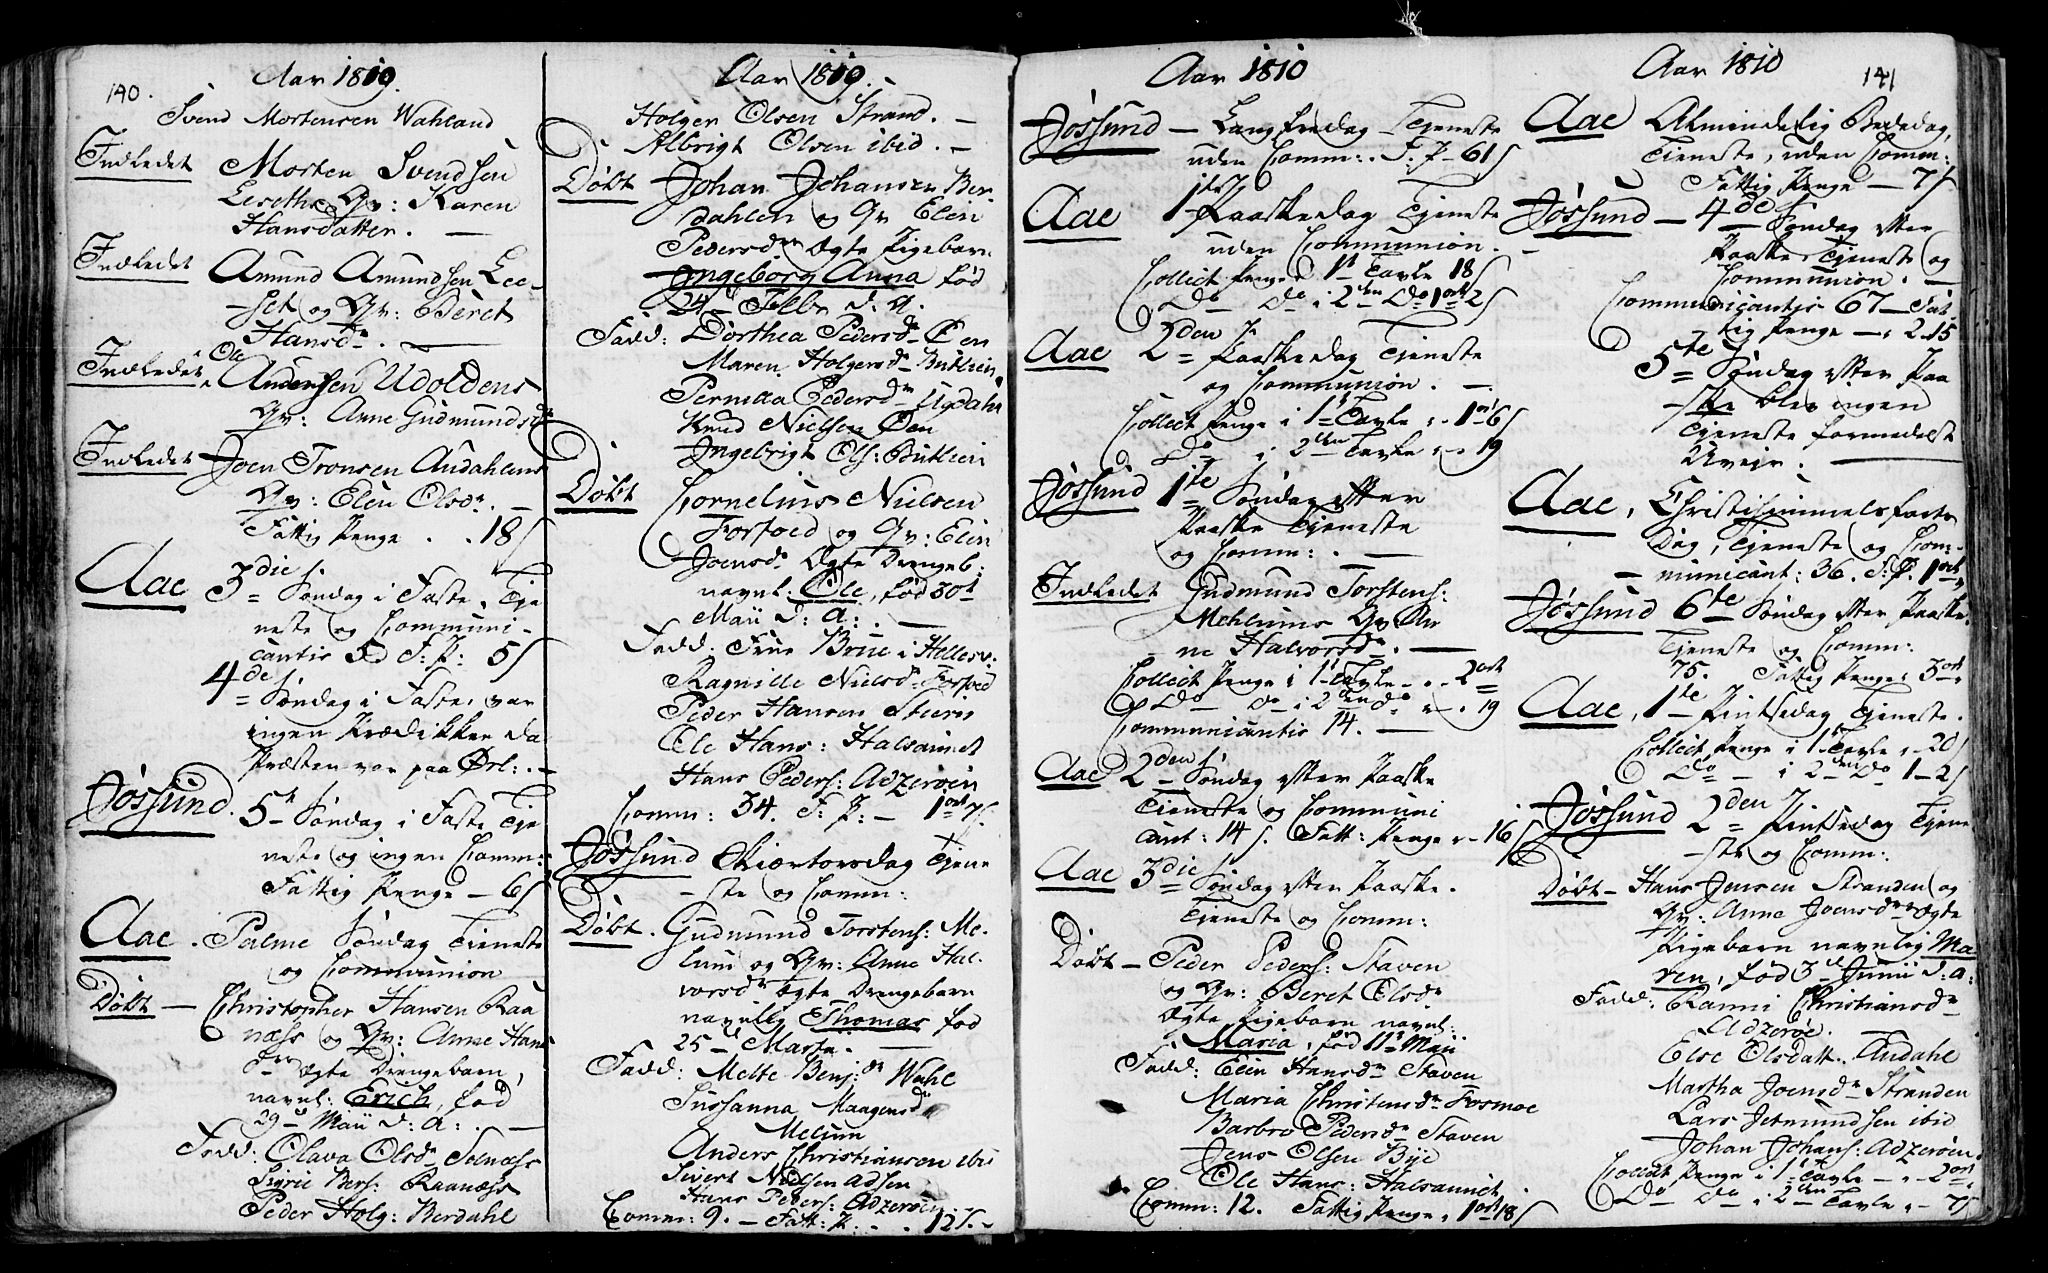 140.
Aar 1819.
Svend Mortensen Wahland
Indledet Morten Svendsen
Leseths Qv: Karen
Hansdatter. —
Indledet Amund Amundsen Lee-
set og Qv: Beret
Hansdr. —
Ole
Indledet Andersen Udoldens
Qv: Anne Gudmundsdr
Indledet Joen Tronsen Audahlens
Qv: Elen Olsdr. —
Fattig Penge . . 18 s
Aae 3die Søndag i Faste, Tje
neste og Communi-
cantis 50 F: P: 5 s
4de Søndag i Faste, var
ingen Prædikken da
Præsten var paa Ørl: . —
Jøssund. 5te Søndag i Faste Tje
neste og ingen Comm:
Fattig Penge — 6 s
Aae. Palme Søndag Tieneste
og Communion
Døbt — Christopher Hansen Raa
næss og Qv: Anne Hans
dr ægte Drengebarn,
navnl: Erich, fød
29 Maii d: a: . —
Fadd: Olava Olsdr Selnæss
Sigrie Bers: Raanæss
Peder Holg: Berdahl
Aar 1819.
Holger Olsen Strand. —
Albrigt Olsen ibid. —
Døbt Johan Johansen Ber-
dahlen og Qv Elen
Pedersdr Ægte Pigebarn
Ingeborg Anna fød
24d Febr d. A.
Fadd: Dorthea Pedersdr Øen
Maren Holgersdr Butlien
Pernilla Pedersdr Ugdahl
Knud Nielsen Øen
Ingebrigt Ols: Butlien
Døbt Cornelius Nielsen
Forfod og Qv: Elen
Joensdr Ægte Drengeb:
navnl: Ole, fød 30t
Maii d: a: . —
Fadd: Frue Brue i Hellesv:
Ragnille Nielsdr Forfod
Peder Hansen Stuen
Ole Hans: Halsaunet
Hans Peders: Adzerøen
Comm: 34. F: P: — 1 ort 7 s.
Jøssund Skiærtorsdag Tjene
-ste og Comm:
Døbt. Gudmund Torstens: Me-
lum og Qv: Anne Hal-
vorsdr Ægte Drengebarn
navnlig Thomas fød
25d Martii. —
Fadd: Melte Benj: dr Wahl
Sussanna Maagensdr
Melum
Anders Christiansen ibid
Sivert Nielsen Adsen
Hans Peders: Adzerøen
Comm: 9. — Fatt: P: . . 12 s. -
Aar 1810
Jøssund — Langfredag Tjeneste
uden Comm: . F. P — 61 s
Aae 1ste Paaskedag Tjeneste
uden Communion.
Collect Penge 1t Tavle 18 s
Do Do i 2den Do 1 ort 2 s
Aae 2den Paaskedag Tjeneste
og Communion. —
Collect Penge i 1t Tavle „ 1 ort 6 s
Do i 2den Tavle „ „ 19
Jøssund 1te Søndag efter
Paaske Tjeneste
og Comm: . —
Indledet Gudmund Torstens:
Mehlums Qv An
ne Halvorsdr. —
Collect Penge i 1t Tavle „ 2 ort
Do do i 2den do „ „ 19
Communicantis 14. —
Aae 2den Søndag efter Paaske
Tieneste og Communi
cant: 14 s. Fatt: Penge „ 16 s
Aae 3die Søndag efter Paaske.
Tjeneste og Comm:
Døbt — Peder Peders: Staven
og Qv: Beret Olsdr
Ægte Pigebarn navnl:
Maria, fød 11t Maii
Fadd: Elen Hansdr Staven
Maria Christensdr Fosmoe
Barbro Pedersdr Staven
Jens Olsen Bye
Ole Hans: Halsaunet
Comm: 12. Fattig Penge „ 1 ort 18 s
Aar 1810
141
Aae Almindelig Bededag,
Tieneste, uden Comm:
Fattig Penge — 7 s
Jøssund — 4de Søndag efter
Paaske Tjeneste og
Communion. —
Communicantis 67 — Fat-
tig Penge — „ 2.15
5te Søndag efter Paa
-ske blev ingen
Tjeneste formedelst
Uveir. —
Aae, Christi himmelfarts
Dag, Tjeneste og Com-
municant: 36. F: P. 1 ort
Jøssund 6te Søndag efter Paaske
Tjeneste og Comm:
75. Fattig Penge 3 ort
Aae, 1te Pintsedag Tjeneste.
Collect Penge i 1t Tavle „ 20 s
Do — i 2den Do 1 — 2 s
Jøssund 2den Pintsedag Tjene
-ste og Comm:
Døbt — Hans Jensen Stranden og
Qv: Anne Joensdr Ægte
Pigebarn navnlig Ma
ren, fød 3d Junii d: a:
Fadd: Ranni Christiansdr
Adzerøe.
Else Olsdatt. Audahl
Martha Joensdr Stranden
Lars Jetmundsen ibid
Johan Johans: Adzerøen
Collect Penge i 1t Tavle — „ 2 ort
Do Do i 2den Tavle „ — 7 s